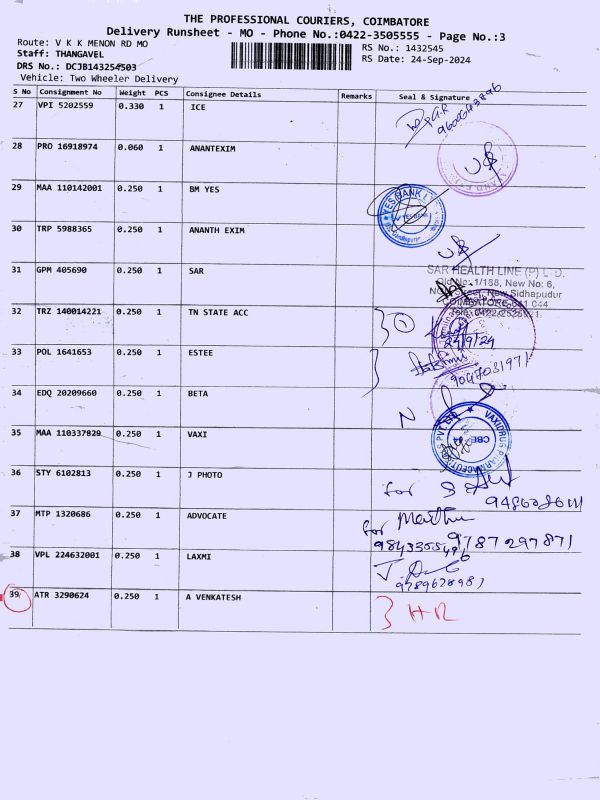 THE PROFESSIONAL COURIERS, COIMBATORE
Delivery Runsheet - MO - Phone No.:0422-3505555 - Page No.:3
Route: V K K MENON RD MO
Staff: THANGAVEL
DRS No.: DCJB143254503
Vehicle: Two Wheeler Delivery
RS No.: 1432545
RS Date: 24-Sep-2024
S No Consignment No Weight PCS Consignee Details Remarks Seal & Signature
27 VPI 5202559 0.330 1 ICE
28 PRO 16918974 0.060 1 ANANTEXIM
29 MAA 110142001 0.250 1 BM YES
YES BANK
30 TRP 5988365 0.250 1 ANANTH EXIM
31 GPM 405690 0.250 1 SAR
SAR HEALTH LINE (P) LTD.
Old No: 1/188, New No: 6,
New Sidhapudur
COIMBATORE-641 044
32 TRZ 140014221 0.250 1 TN STATE ACC
24/9/24
33 POL 1641653 0.250 1 ESTEE
34 EDQ 20209660 0.250 1 BETA
N
35 MAA 110337829 0.250 1 VAXI
CBE
36 STY 6102813 0.250 1 J PHOTO
for
37 MTP 1320686 0.250 1 ADVOCATE
for
9787297871
38 VPL 224632001 0.250 1 LAXMI
39 ATR 3290624 0.250 1 A VENKATESH